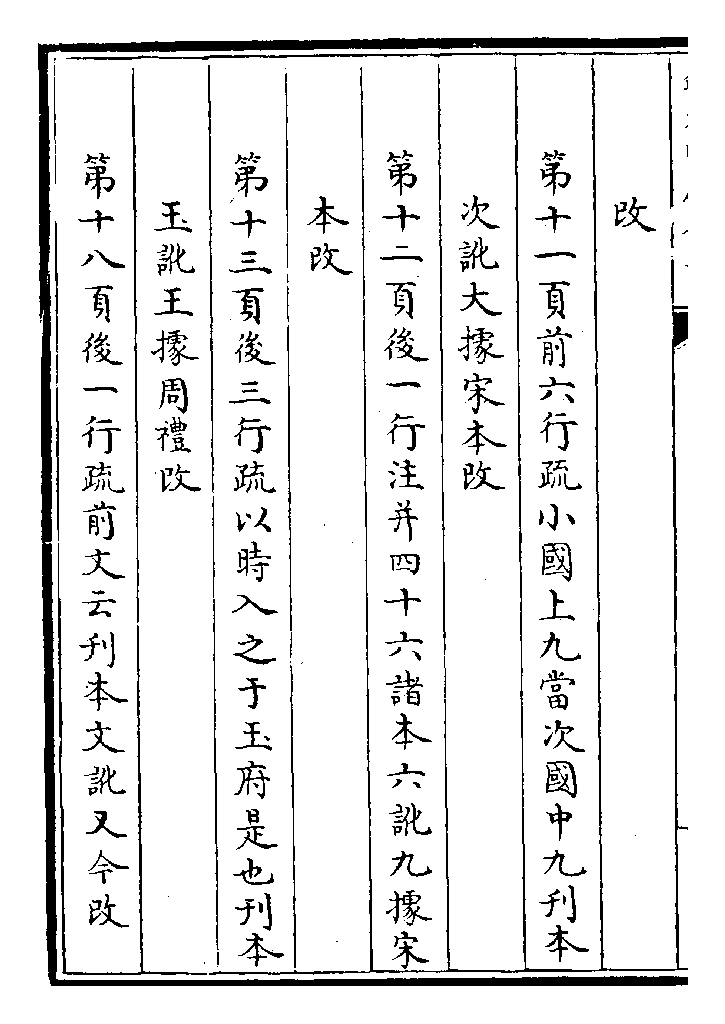 改
第十一頁前六行疏小國上九當次國中九刊本
次訛大據宋本改
第十二頁後一行注并四十六諸本六訛九據宋
本改
第十三頁後三行疏以時入之于玉府是也刊本
玉訛王據周禮改
第十八頁後一行疏前文云刊本文訛又今改